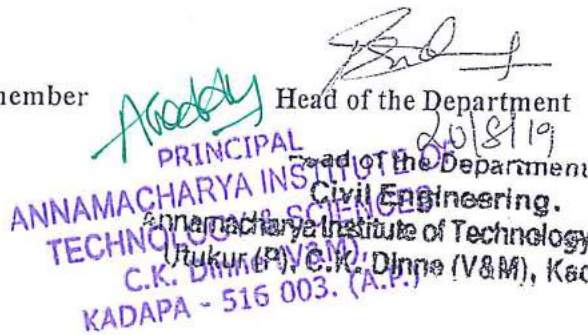 member
Head of the Department
20/8/19
PRINCIPAL
ANNAMACHARYA INSTITUTE OF
TECHNOLOGY & SCIENCES
C.K. Dinne (V&M),
KADAPA - 516 003. (A.P.)
Head of the Department
Civil Engineering.
Annamacharya Institute of Technology
Utukur (P), C.K. Dinne (V&M), Kad